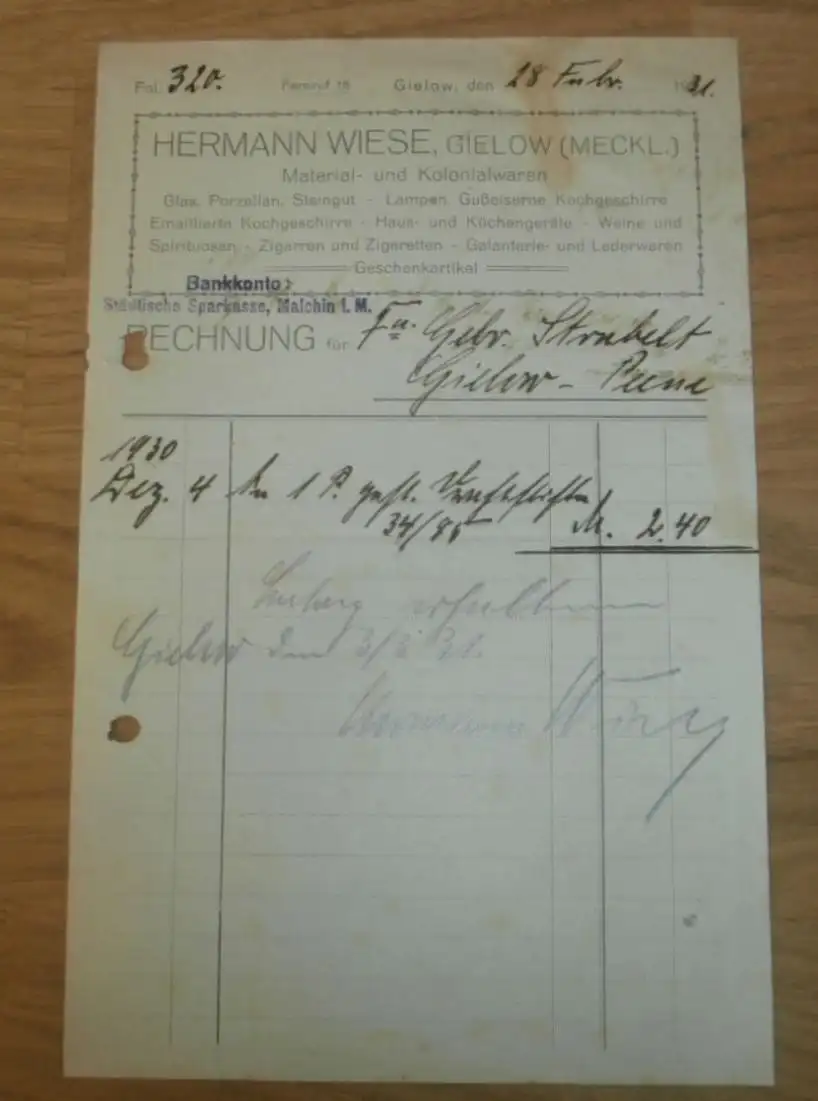 Fol. 320. Fernruf 18 Gielow, den 28 Febr. 1931.
HERMANN WIESE, GIELOW (MECKL.)
Material- und Kolonialwaren
Glas, Porzellan, Steingut - Lampen, Gußeiserne Kochgeschirre
Emaillierte Kochgeschirre - Haus- und Küchengeräte - Weine und
Spirituosen - Zigarren und Zigaretten - Galanterie- und Lederwaren
Geschenkartikel
Bankkonto:
Städtische Sparkasse, Malchin i. M.
RECHNUNG für Fa. Gebr. Strubelt
Gielow - Peene
1930
Dez. 4 An 1 P.
34/85 M. 2.40
Betrag erhalten
Gielow den 3/3 31.
Hermann Wiese